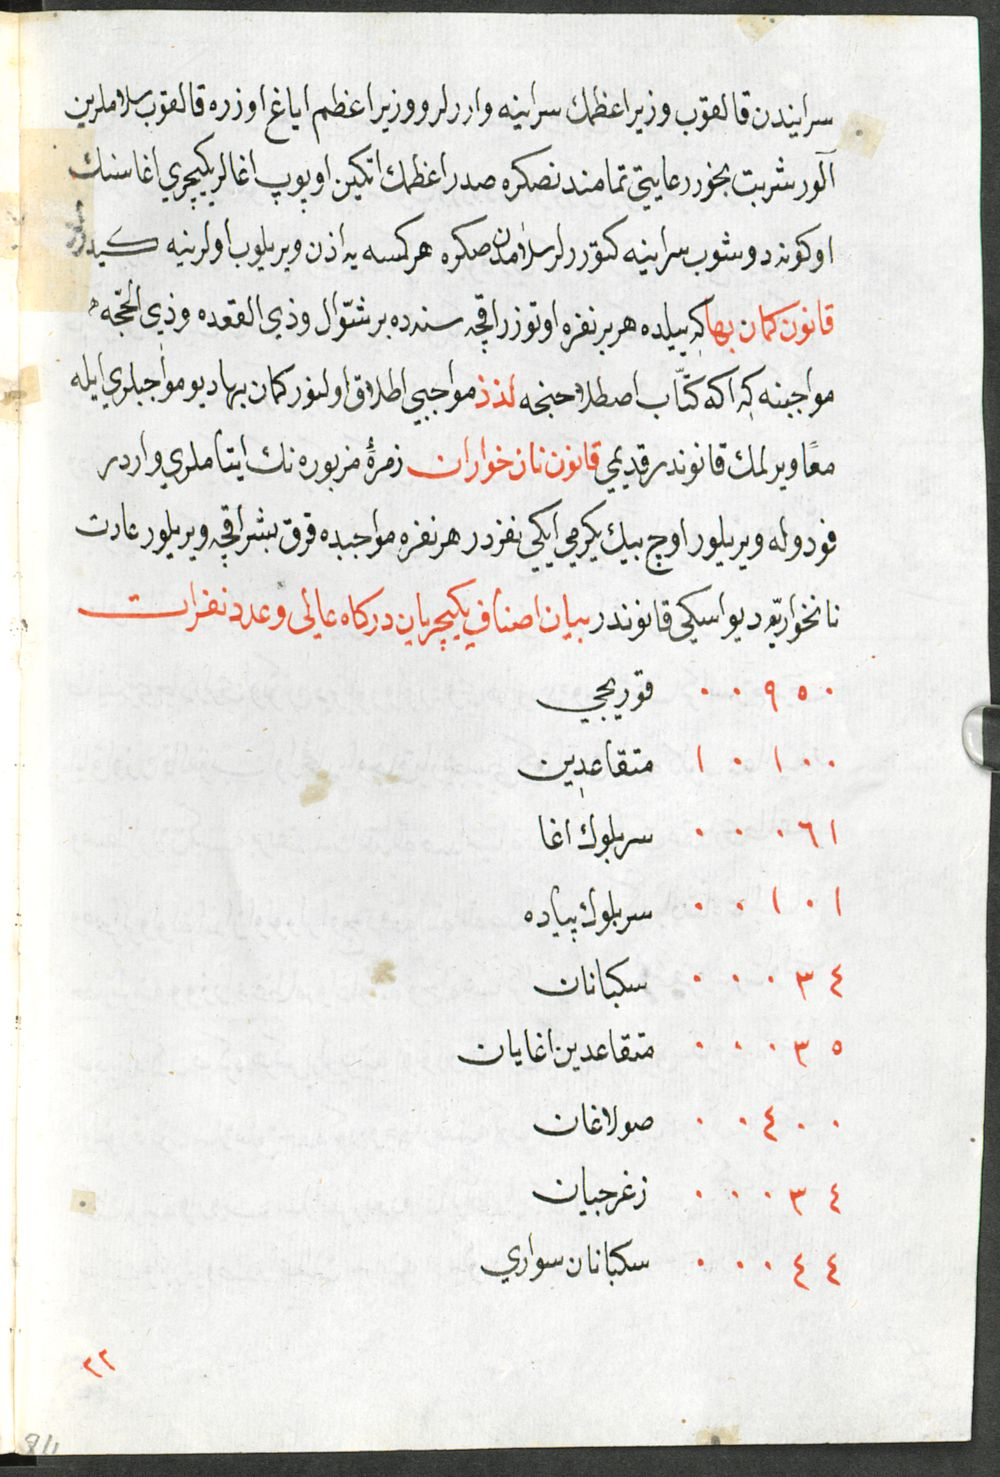 سرایندن قالقوب وزیر اعظمك سراینه وارلر و وزیر اعظم ایاغ اوزره قالقوب سلاملرین
آلور شربت بخور رعایتی تمامندنصكره صدر اعظمك اتكین اوپوپ اغالر یكیچری اغاسنك
اوكونه دوشوب سراینه كتوررلر سلامدن صكره هر كسه یه اذن ویریلوب اولرینه كیدر
قانون كمان بها كه ییلده هر بر نفره اوتوزر اقچه سنه ده بر شوّال وذي القعده وذي الحجّه
مواجبنه كه اكه كتّاب اصطلاحنجه لذذ مواجبي اطلاق اولنور كمان بها دیو مواجبلري ایله
معًا ویرلمك قانوندر قدیمي قانون نان خواران زمرهٔ مزبوره نك ایتاملري واردر
فودوله ویریلور اوچ بیك یكرمي ایكي نفردر هر نفره مواجبده قرق بشر اقچه ویریلور عادت
نانخواریّه دیو اسكي قانوندر بیان اصناف یكیچریان دركاه عالی وعدد نفرات
٠ ٥ ٩ ٠ ٠ قوریجي
٠ ٠ ١ ٠ ١ متقاعدین
١ ٦ ٠ ٠ ٠ سربلوك اغا
١ ٠ ١ ٠ ٠ سربلوك پیاده
٤ ٣ ٠ ٠ ٠ سكبانان
٥ ٣ ٠ ٠ ٠ متقاعدین اغایان
٠ ٠ ٤ ٠ ٠ صولاغان
٤ ٣ ٠ ٠ ٠ زغرجیان
٤ ٤ ٠ ٠ ٠ سكبانان سواري
٢٢
118